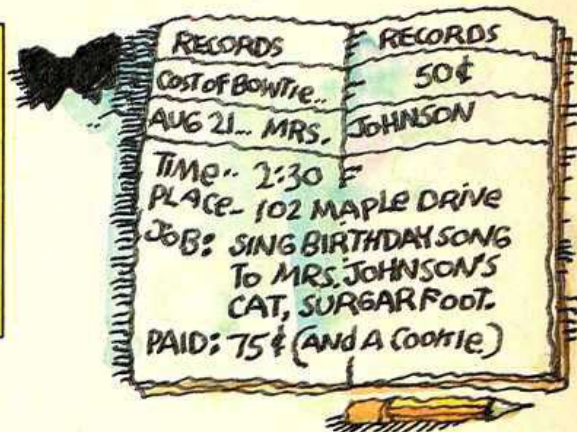 RECORDS RECORDS
COST OF BOWTIE.. 50¢
AUG 21... MRS. JOHNSON
TIME.. 2:30
PLACE- 102 MAPLE DRIVE
JOB: SING BIRTHDAY SONG
TO MRS. JOHNSON'S
CAT, SURGARFOOT.
PAID: 75¢ (AND A COOKIE)